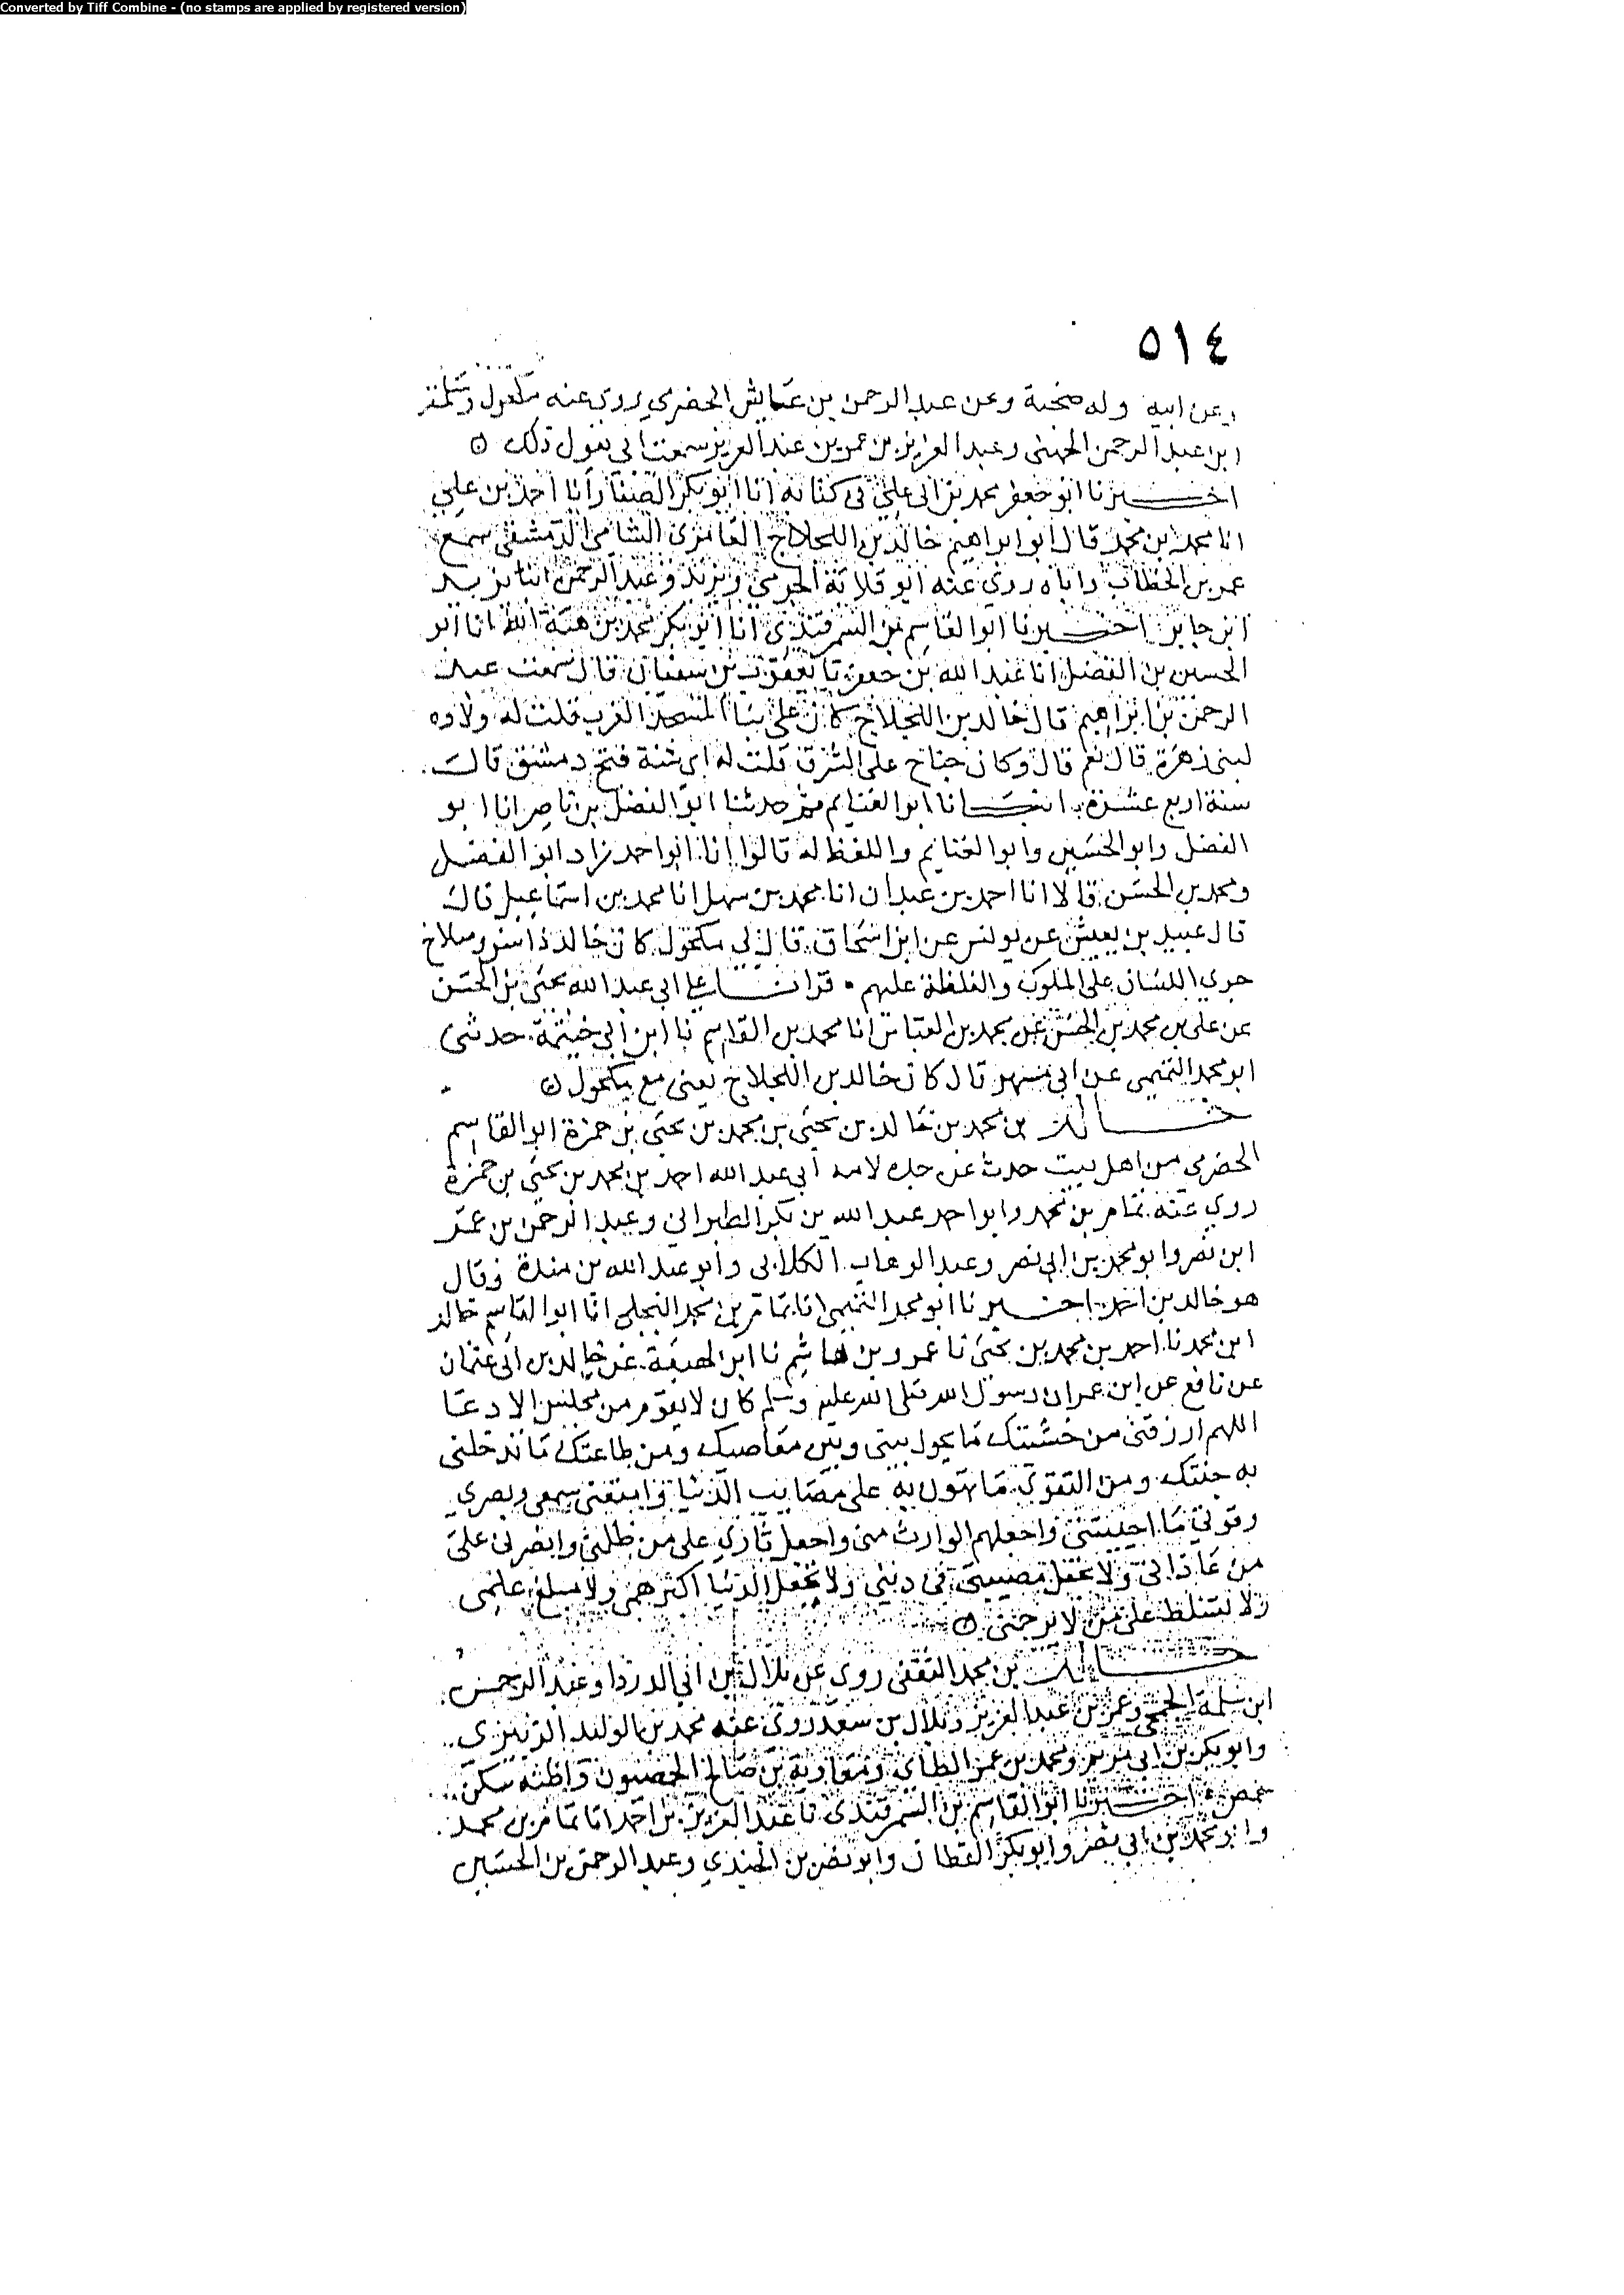 Converted by Tiff Combine - (no stamps are applied by registered version)
٥١٤
وعن ابيه وله صحبة وعن عبد الرحمن بن عايش الحضرمي روى عنه مكحول ومسلمة
ابن عبد الرحمن الجهني وعبد العزيز بن عمر بن عبد العزيز سمعت ابي يقول ذلك ٥
اخبرنا ابو جعفر محمد بن ابي علي في كتابه انا ابو بكر الصفار انا احمد بن علي
انا محمد بن محمد قال ابو ابراهيم خالد بن اللجلاج العامري الشامي الدمشقي سمع
عمر بن الخطاب واباه روى عنه ابو قلابة الجرمي ويزيد وعبد الرحمن ابنا يزيد
ابن جابر اخبرنا ابو القاسم بن السمرقندي انا ابو بكر محمد بن هبة الله انا ابو
الحسين بن الفضل انا عبد الله بن جعفر نا يعقوب بن سفيان قال سمعت عبد
الرحمن بن ابراهيم قال خالد بن اللجلاج كان على بنا المسجد الغرب قلت له ولاوه
لبني زهرة قال نعم قال وكان جناح على الشرق قلت له اي سنة فتح دمشق قال
سنة اربع عشرة انبانا ابو الغنايم ثم حدثنا ابو الفضل بن ناصر انا ابو
الفضل وابو الحسين وابو الغنايم واللفظ له قالوا انا ابو احمد زاد ابو الفضل
ومحمد بن الحسن قالا انا احمد بن عبدان انا محمد بن سهل انا محمد بن اسماعيل قال
قال عبيد بن يعيش عن يونس عن ابن اسحاق قال لي مكحول كان خالد ذا سن وصلاح
جري اللسان على الملوك والغلظة عليهم قرانا على ابي عبد الله يحيى بن الحسن
عن علي بن محمد بن الحسن عن محمد بن العباس انا محمد بن القاسم نا ابن ابي خيثمة حدثني
ابو محمد التميمي عن ابي مسهر قال كان خالد بن اللجلاج يفتي مع مكحول ٥
خالد بن محمد بن خالد بن يحيى بن محمد بن يحيى بن حمزة ابو القاسم
الحضرمي من اهل بيت حدث عن جده لامه ابي عبد الله احمد بن محمد بن يحيى بن حمزة
روى عنه تمام بن محمد وابو احمد عبد الله بن بكر الطبراني وعبد الرحمن بن عمر
ابن نصر وابو محمد بن ابي نصر وعبد الوهاب الكلابي وابو عبد الله بن مندة وقال
هو خالد بن احمد اخبرنا ابو محمد التميمي انا تمام بن محمد البجلي انا ابو القاسم خالد
ابن محمد نا احمد بن محمد بن يحيى نا عمرو بن هاشم نا ابن لهيعة عن خالد بن ابي عمران
عن نافع عن ابن عمر ان رسول الله صلى الله عليه وسلم كان لا يقوم من مجلس الا دعا
اللهم ارزقني من خشيتك ما يحول بيني وبين معاصيك ومن طاعتك ما تدخلني
به جنتك ومن التقوى ما تهون به على مصايب الدنيا وامتعني بسمعي وبصري
وقوتي ما احييتني واجعلهم الوارث مني واجعل ثاري على من ظلمني وانصرني على
من عاداني ولا تجعل مصيبتي في ديني ولا تجعل الدنيا اكثر همي ولا مبلغ علمي
ولا تسلط علي من لا يرحمني ٥
خالد بن محمد الثقفي روى عن بلال بن ابي الدردا وعبد الرحمن
ابن سلمة الجمحي وعمر بن عبد العزيز وبلال بن سعد روى عنه محمد بن الوليد الزبيدي
وابو بكر بن ابي مريم ومحمد بن عمر الطاي ومعاوية بن صالح الحمصيون واظنه سكن
حمص اخبرنا ابو القاسم بن السمرقندي نا عبد العزيز بن احمد انا تمام بن محمد
وابو محمد بن ابي نصر وابو بكر القطان وابو نصر بن الجندي وعبد الرحمن بن الحسين